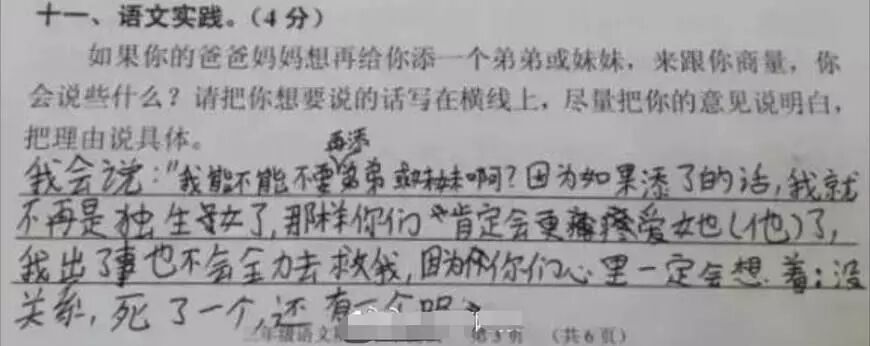 十一、语文实践。(4分)
如果你的爸爸妈妈想再给你添一个弟弟或妹妹，来跟你商量，你
会说些什么？请把你想要说的话写在横线上，尽量把你的意见说明白，
把理由说具体。
再添
我会说："我能不能不要弟弟或妹妹啊？因为如果添了的话，我就
不再是独生女了，那样你们肯定会更疼爱她(他)了，
我出了事也不会全力去救我，因为你们心里一定会想着：没
关系，死了一个，还有一个呢
年级语文 第3页 (共6页)